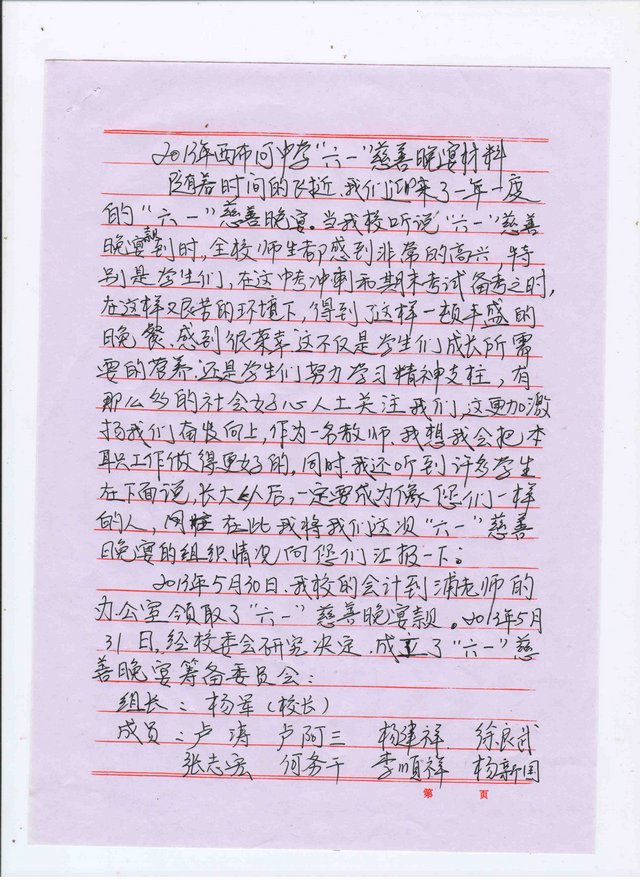 2013年西布河中学“六一”慈善晚宴材料
随着时间的飞近，我们迎来了一年一度
的“六一”慈善晚宴。当我校听说“六一”慈善
晚宴款到时，全校师生都感到非常的高兴，特
别是学生们，在这中考冲刺和期末考试备考之时，
在这样艰苦的环境下，得到了这样一顿丰盛的
晚餐，感到很荣幸这不仅是学生们成长所需
要的营养，还是学生们努力学习精神支柱，有
那么多的社会好心人士关注我们，这更加激
扬我们奋发向上，作为一名教师，我想我会把本
职工作做得更好的，同时，我还听到许多学生
在下面说，长大以后，一定要成为像您们一样
的人，在此我将我们这次“六一”慈善
晚宴的组织情况向您们汇报一下。
2013年5月30日，我校的会计到浦老师的
办公室领取了“六一”慈善晚宴款。2013年5月
31日，经校委会研究决定，成立了“六一”慈
善晚宴筹备委员会：
组长：杨军（校长）
成员：卢涛 卢阿三 杨建祥 徐良武
张志宏 何务干 李顺祥 杨新国
第 页